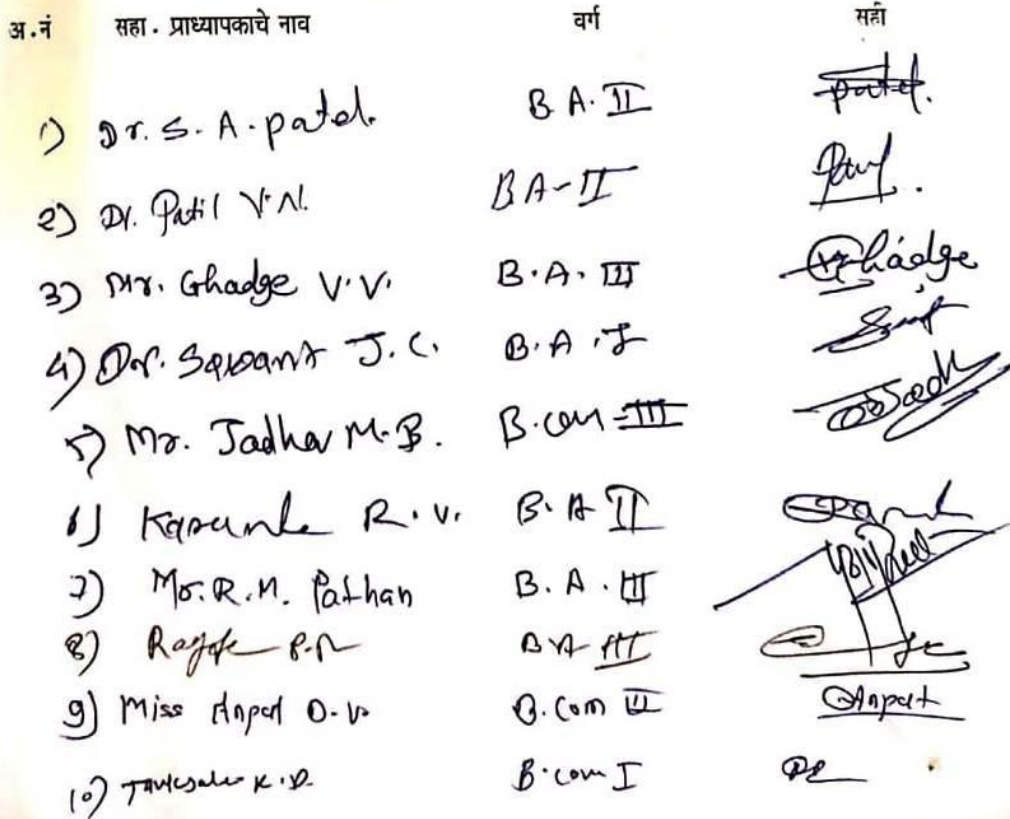 अ.नं सहा. प्राध्यापकाचे नाव वर्ग सही
1) Dr. S. A. patel. B A. II patel.
2) Dr. Patil V.N. BA-II
3) Mr. Ghadge V.V. B.A. III Ghadge
4) Dr. Sawant J.C. B.A. I
5) Mr. Jadhav M.B. B.com-III
6) R.V. B.A II
7) Mr. R.M. Pathan B.A. III
8) BA III
9) Miss Anpat D.V. B.Com II Anpat
10) K.D. B.com I